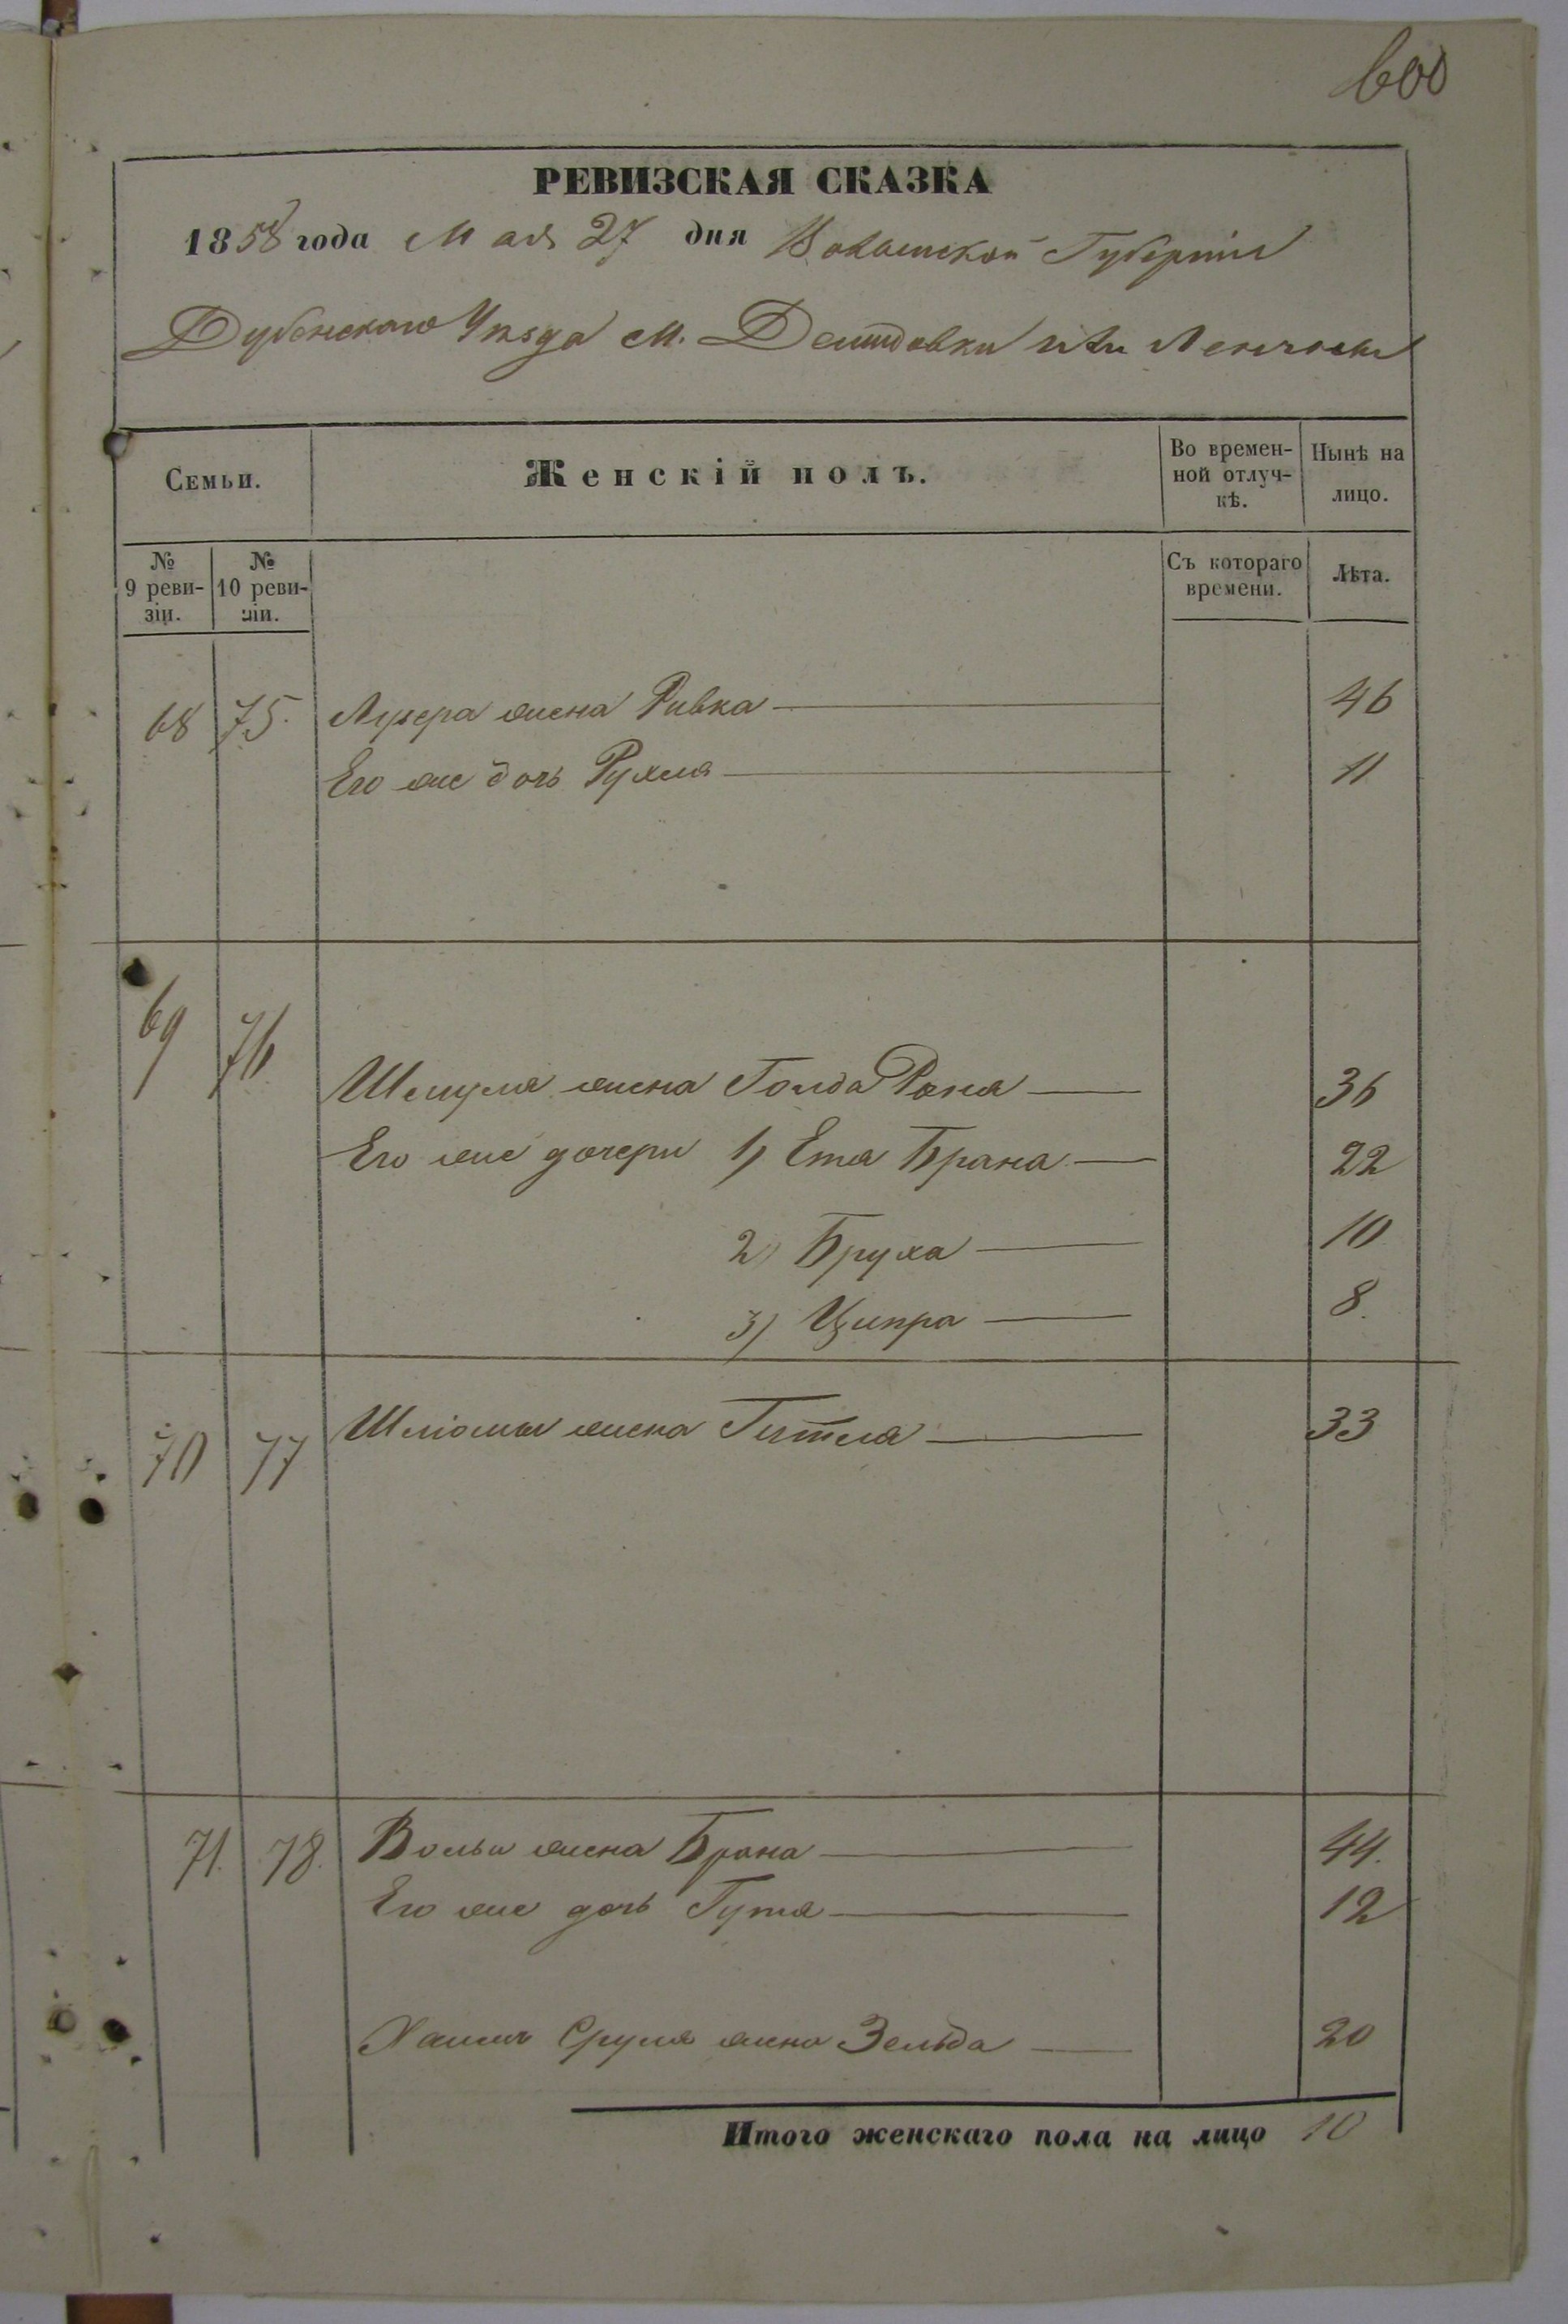 600
РЕВИЗСКАЯ СКАЗКА
1858 года Мая 27 дня Волынской Губернiи
Дубенскаго Уѣзда м. Демидовки или
Семьи.
Женскій полъ.
Во времен-
ной отлуч-
кѣ.
Нынѣ на
лицо.
№
9 реви-
зіи.
№
10 реви-
зіи.
Съ котораго
времени.
Лѣта.
68 75. Лузера жена Ривка 46
Его же дочь Рухля 11
69 76
Шмуля жена Голда Раня 36
Его же дочери 1) Етя Брана 22
2) Бруха 10
3) Ципра 8.
70 77 Шліомы жена Гитля 33
71. 78. Вольи жена Брана 44.
Его же дочь Гутя 12
Сруля жена Зельда 20
Итого женскаго пола на лицо 10